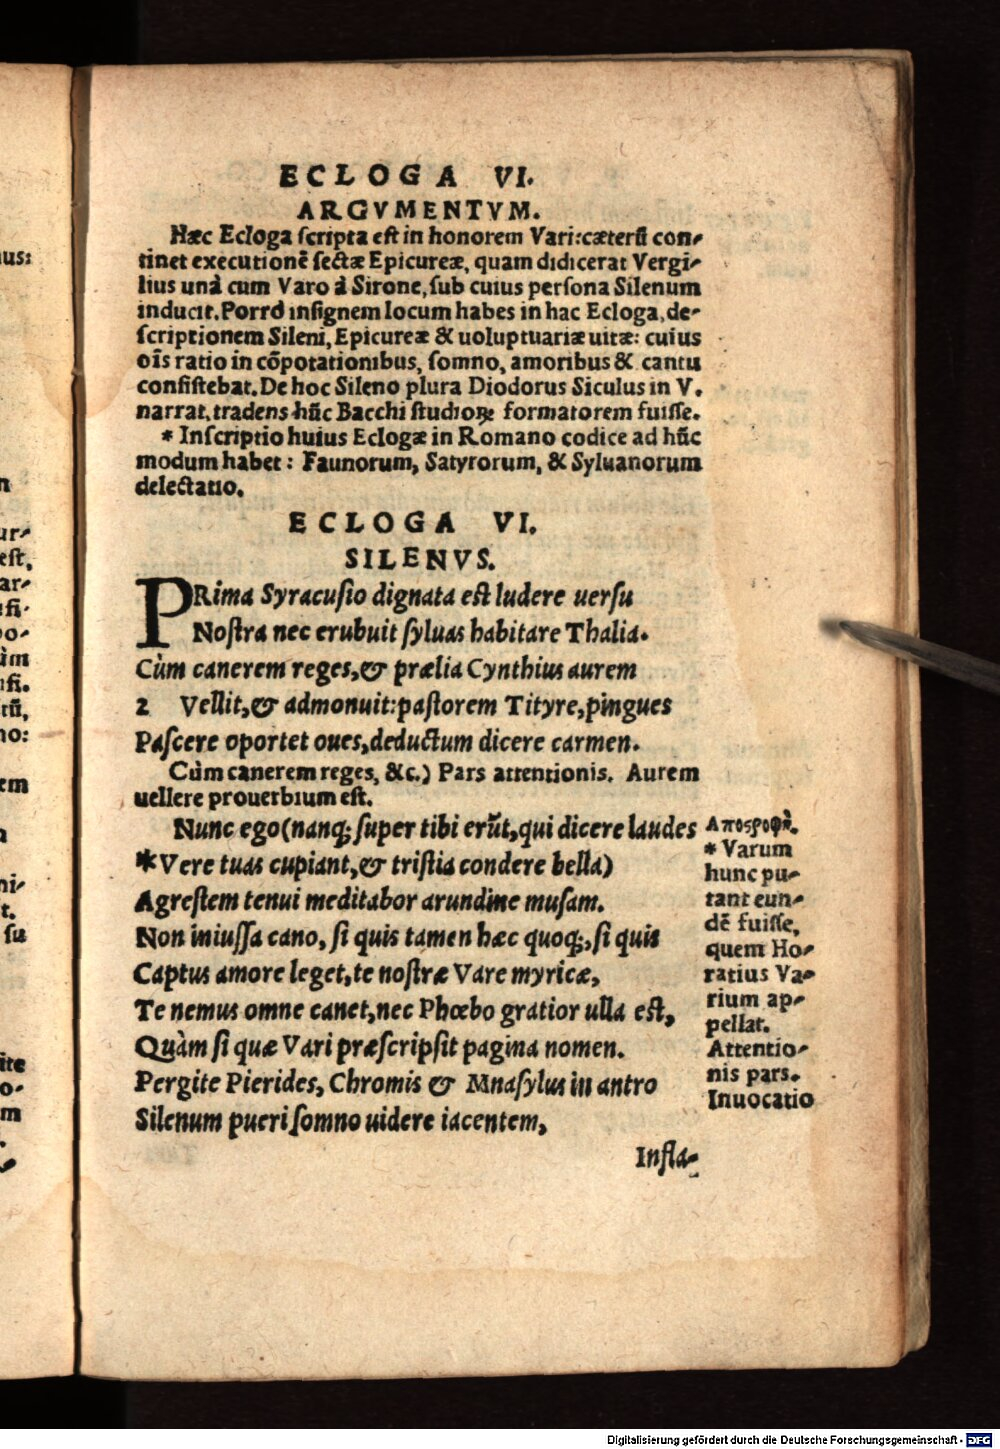 ECLOGA VI.
ARGVMENTVM.
Hæc Ecloga ſcripta eſt in honorem Vari: cæterũ con-
tinet executionẽ ſectæ Epicureæ, quam didicerat Vergi-
lius unà cum Varo à Sirone, ſub cuius perſona Silenum
inducit. Porrò inſignem locum habes in hac Ecloga, de-
ſcriptionem Sileni, Epicureæ & uoluptuariæ uitæ: cuius
oĩs ratio in cõpotationibus, ſomno, amoribus & cantu
conſiſtebat. De hoc Sileno plura Diodorus Siculus in V.
narrat, tradens hũc Bacchi ſtudioꝝ formatorem fuiſſe.
* Inſcriptio huius Eclogæ in Romano codice ad hũc
modum habet: Faunorum, Satyrorum, & Syluanorum
delectatio.
ECLOGA VI.
SILENVS.
PRima Syracuſio dignata eſt ludere uerſu
Noſtra nec erubuit ſyluas habitare Thalia.
Cùm canerem reges, & prælia Cynthius aurem
2 Vellit, & admonuit: paſtorem Tityre, pingues
Paſcere oportet oues, deductum dicere carmen.
Cùm canerem reges, &c.) Pars attentionis. Aurem
uellere prouerbium eſt.
Nunc ego (nanq; ſuper tibi erũt, qui dicere laudes
*Vere tuas cupiant, & triſtia condere bella)
Agreſtem tenui meditabor arundine muſam.
Non iniuſſa cano, ſi quis tamen hæc quoq;, ſi quis
Captus amore leget, te noſtræ Vare myricæ,
Te nemus omne canet, nec Phœbo gratior ulla eſt,
Quàm ſi quæ Vari præſcripſit pagina nomen.
Pergite Pierides, Chromis & Mnaſylus in antro
Silenum pueri ſomno uidere iacentem,
Infla-
* Varum
hunc pu-
tant eun-
dẽ fuiſſe,
quem Ho-
ratius Va-
rium ap-
pellat.
Attentio-
nis pars.
Inuocatio
Digitalisierung gefördert durch die Deutsche Forschungsgemeinschaft - DFG